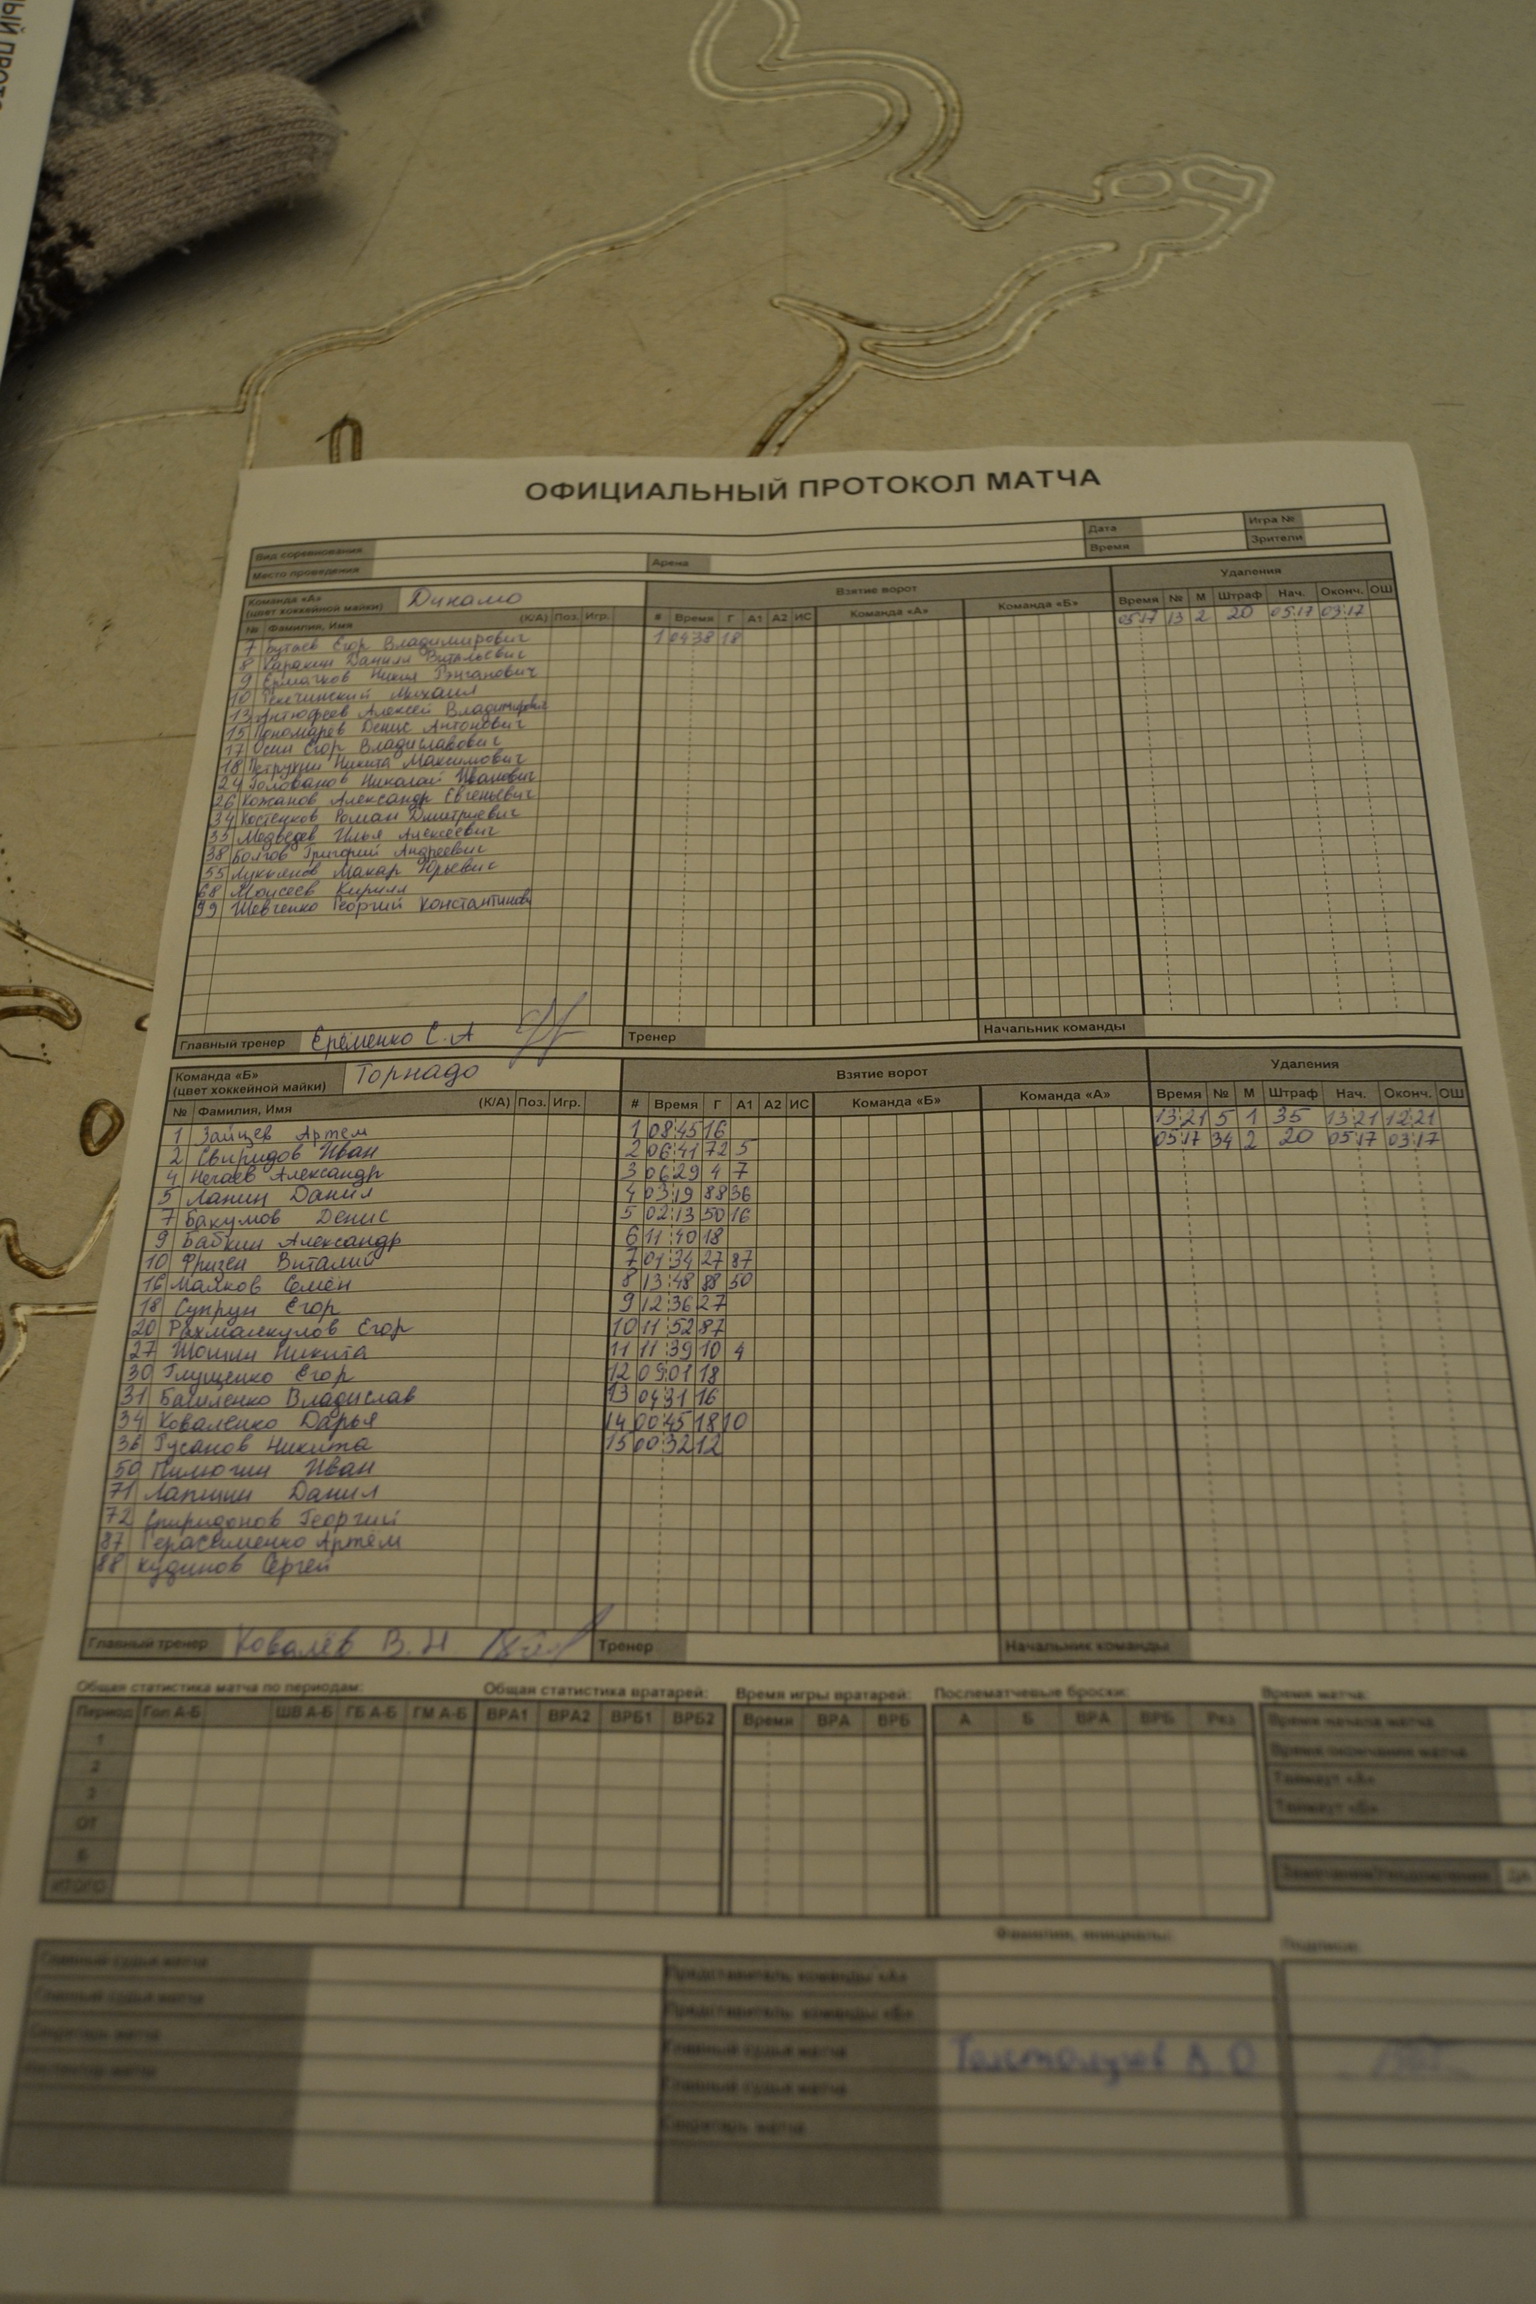 ОФИЦИАЛЬНЫЙ ПРОТОКОЛ МАТЧА
Вид соревнования Дата Игра №
Место проведения Арена Время Зрители
Команда «А» (цвет хоккейной майки) Динамо Взятие ворот Удаления
№ Фамилия, Имя (К/А) Поз. Игр. # Время Г А1 А2 ИС Команда «А» Команда «Б» Время № М Штраф Нач. Оконч. ОШ
7 Бутаев Егор Владимирович 1 04:38 18 05:17 13 2 20 05:17 03:17
8 Каракин Данила Витальевич
9 Ермачков Никита
10 Михаил
13 Антюфеев Алексей Владимирович
15 Пономарев Денис Антонович
17 Осин Егор Владиславович
18 Петрухин Никита Максимович
24 Голованов Николай Иванович
26 Кожанов Александр Евгеньевич
34 Костенков Роман Дмитриевич
35 Медведев Илья Алексеевич
38 Болгов Григорий Андреевич
55 Лукьянов Макар Юрьевич
68 Моисеев Кирилл
99 Шевченко Георгий Константинов
Главный тренер Еременко С.А Тренер Начальник команды
Команда «Б» (цвет хоккейной майки) Торнадо Взятие ворот Удаления
№ Фамилия, Имя (К/А) Поз. Игр. # Время Г А1 А2 ИС Команда «Б» Команда «А» Время № М Штраф Нач. Оконч. ОШ
1 Зайцев Артем 1 08:45 16 13:21 5 1 35 13:21 12:21
2 Свиридов Иван 2 06:41 72 5 05:17 34 2 20 05:17 03:17
4 Нечаев Александр 3 06:29 4 7
5 Ланин Данил 4 03:19 88 36
7 Бакумов Денис 5 02:13 50 16
9 Бабкин Александр 6 11:40 18
10 Фризен Виталий 7 01:34 27 87
16 Маяков Семён 8 13:48 88 50
18 Супрун Егор 9 12:36 27
20 Рахманкулов Егор 10 11:52 87
27 Шошин Никита 11 11:39 10 4
30 Глущенко Егор 12 09:01 18
31 Василенко Владислав 13 04:31 16
34 Коваленко Дарья 14 00:45 18 10
36 Гусанов Никита 15 00:32 12
50 Пимогин Иван
71 Лапшин Данил
72 Спиридонов Георгий
87 Герасименко Артём
88 Кудинов Сергей
Главный тренер Ковалёв В.Н Тренер Начальник команды
Общая статистика матча по периодам: Общая статистика вратарей: Время игры вратарей: Послематчевые броски: Время матча:
Период Гол А-Б ШВ А-Б ГБ А-Б ГМ А-Б ВРА1 ВРА2 ВРБ1 ВРБ2 Время ВРА ВРБ А Б ВРА ВРБ Рез Время начала матча
1 Время окончания матча
2 Таймаут «А»
3 Таймаут «Б»
ОТ
Б
ИТОГО
Фамилия, инициалы: Подписи:
Главный судья матча Представитель команды «А»
Главный судья матча Представитель команды «Б»
Секретарь матча Главный судья матча
Инспектор матча Главный судья матча
Секретарь матча